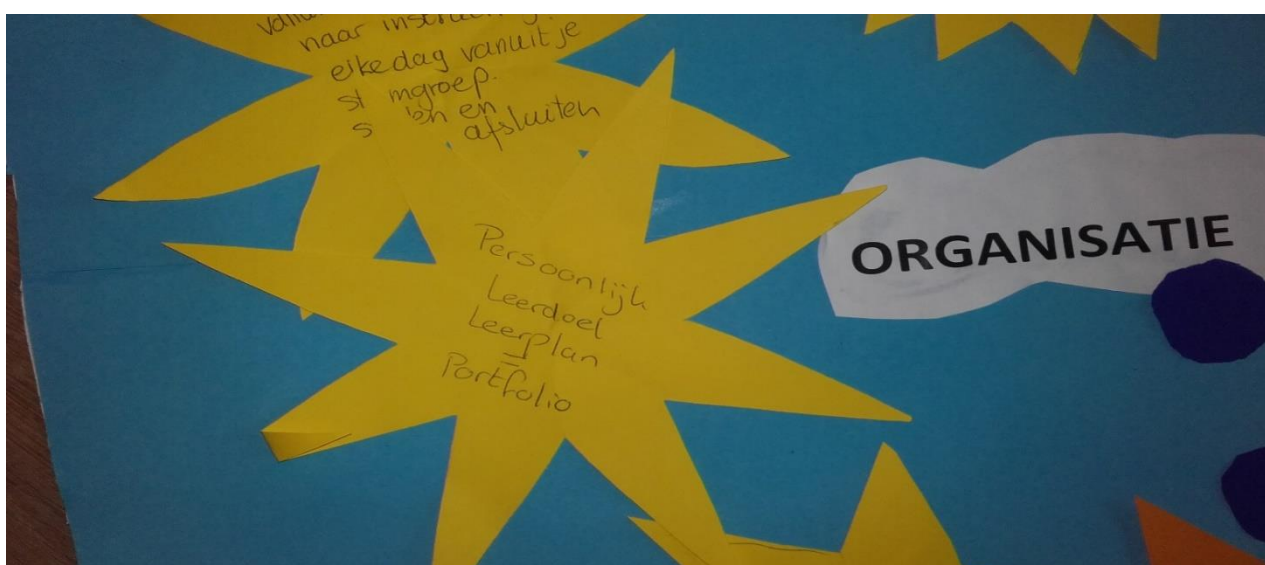 naar
elke dag vanuit je
st mgroep.
s en en
afsluiten
Persoonlijk
Leerdoel
Leerplan
=
Portfolio
ORGANISATIE